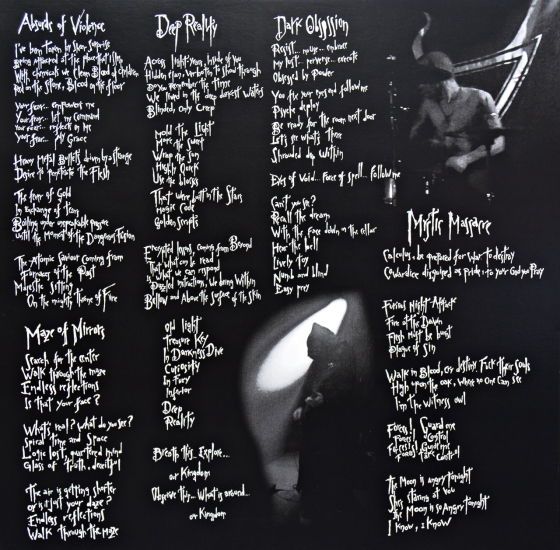 Absurds of Violence
I've been taken by
With chemicals we clean Blood of children
on the floor, Blood on the floor
Your fear... empowers me
Your fear... let me command
Your fear... reflects in me
Your fear... My Grace
Heavy Metal Bullets driven by a strange
Desire to penetrate the Flesh
The fever of Gold
In Exchange of
Boiling under
Until the Moment of the Dangerous Fusion
The Atomic Saviour coming from
Furnaces of the Past
Majestic sitting
On the mighty throne of Fire
Maze of Mirrors
Search for the center
Walk through the maze
Endless reflections
Is that your face?
What's real? What do you see?
Spiral time and Space
Logic lost, quartered mind
Glass of truth, deceitful
The air is getting shorter
or is it just your daze?
Endless reflections
Walk through the Maze
Deep Reality
Across light-years, Inside of you
Hidden Glory, to show through
Do you Remember the Times
We lived in the deep darkest
Blinded, only Creep
Hold the Light
More the sweet
Wrap the Sun
Highly Quest
Use the blocks
That were built in the Stars
Magic Code
Golden Scripts
Encrypted legends, coming from Beyond
That what can be read
What we can respond
Puzzled instructions, we bring Within
Bellow and Above the Surface of the Skin
Old light
Treasure Key
In Darkness Dive
Curiosity
In Fury
Inferior
Deep
Reality
Breath this... Explore...
our Kingdom
Observe this... What is around...
our Kingdom
Dark Obsession
Resist... noise... embrace
My lust... perverse... execute
Obsessed by Power
You fix your eyes and follow me
Psyche deploy
Be ready for the man next door
Let's see what's There
Shrouded deep Within
Eyes of Void... Force of spell... Follow me
Can't you see?
Recall the dream
With the face down in the cellar
Hear the bell
Lively toy
Numb and blind
Easy prey
Mystic Massacre
be prepared for War to destroy
Cowardice disguised as Pride to your God you Pray
Furious Night Attack
Fire at the Dawn
Flesh must be burnt
Plague of Sin
Walk in Blood, destiny. Fuck their Souls
High upon the oak, Where no One Can see
I'm the Witness owl
Forces! Guard me
Forces! Control
Forces! Guard me
Forces! Take Control
The Moon is angry tonight
She's staring at you
The Moon is so Angry tonight
I know, I know